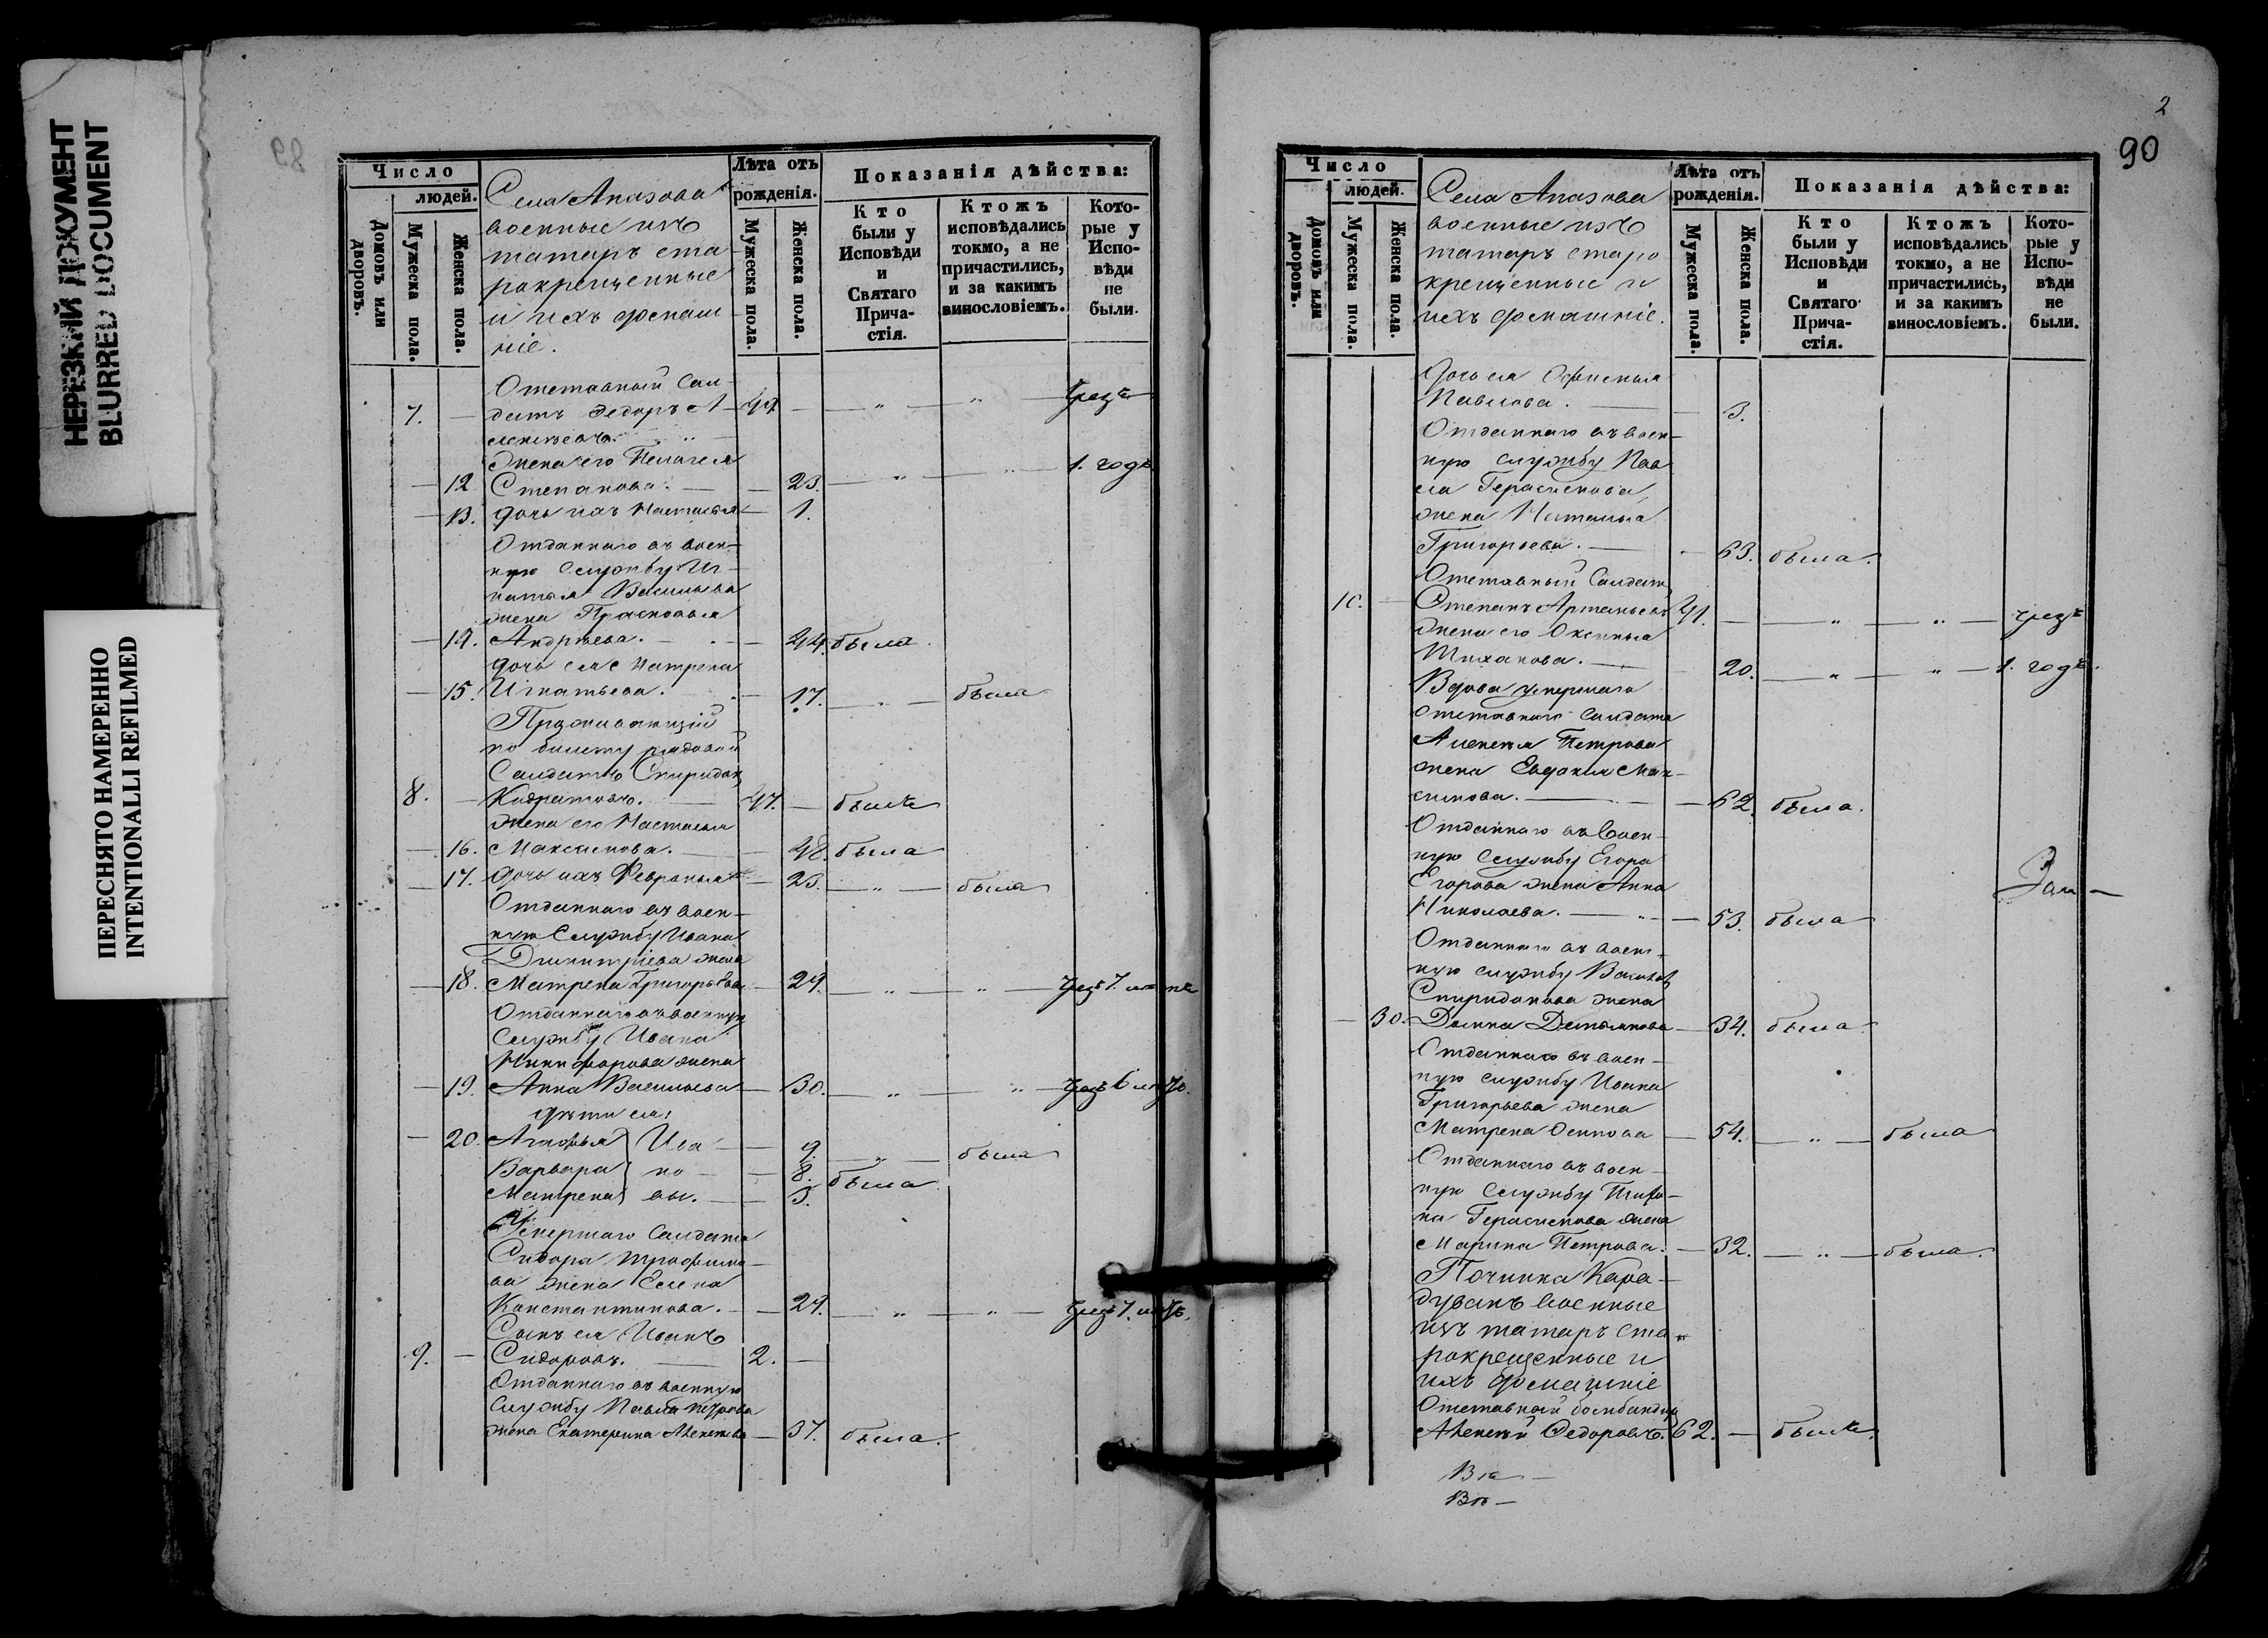 НЕРЕЗКИЙ ДОКУМЕНТ
BLURRED DOCUMENT
ПЕРЕСНЯТО НАМЕРЕННО
INTENTIONALLI REFILMED
89
Число
людей.
Домовъ или дворовъ.
Мужеска пола.
Женска пола.
Села Апазова
военные изъ
татаръ ста-
рокрещенные
и ихъ домаш-
ніе.
Лѣта отъ рожденія.
Мужеска пола.
Женска пола.
Показанія дѣйства:
Кто были у Исповѣди и Святаго Прича- стія.
Ктожъ исповѣдались токмо, а не причастились, и за какимъ винословіемъ.
Кото- рые у Испо- вѣди не были.
Отставный Сол-
7. — датъ Федоръ А- 49. — — " — " —
лексѣевъ.
Жена его Пелагея 1. годъ
— 12. Степанова. — — 23. — " —
— 13. Дочь ихъ Настасья — 1.
Отданнаго въ воен-
ную Службу Иг-
натья Васильева
жена Прасковья
— 14. Андрѣева. — — 44. была
Дочь ея Матрена
— 15. Игнатьева. — 17. — была
Проживающій
по билету рядовой
Солдатъ Спиридонъ
8. — Кодратовъ. — 47. — былъ
Жена его Настасья
— 16. Максимова. — — 48. была
— 17. Дочь ихъ Февронья — 23. — " — была
Отданнаго въ воен-
ную Службу Ивана
Димитріева жена
— 18. Матрена Григорьева — 29. — " — " —
Отданнаго въ военную
Службу Ивана
Никифорова жена
— 19. Анна Васильева — 30. — " — " —
Дѣти ея:
— 20. Агафья } Ива- — 9. — " — была
Варвара } но- — 8. была
Матрена } вы. — 3.
Умершаго Солдата
Сидора Трофимо-
ва жена Елена
Константинова. — — 29. — " — " —
Сынъ ея Иванъ
9. — Сидоровъ. — 2. —
Отданнаго въ военную
Службу Павла Петрова
жена Екатерина Алексѣева — 37. была.
2
90
Число
людей.
Домовъ или дворовъ.
Мужеска пола.
Женска пола.
Села Апазова
военные изъ
татаръ старо
крещенные и
ихъ домашніе.
Лѣта отъ рожденія.
Мужеска пола.
Женска пола.
Показанія дѣйства:
Кто были у Исповѣди и Святаго Прича- стія.
Ктожъ исповѣдались токмо, а не причастились, и за какимъ винословіемъ.
Кото- рые у Испо- вѣди не были.
Дочь ея
Павлова. — — 3.
Отданнаго въ воен-
ную службу Пав-
ла Герасимова
жена Наталья
Григорьева. — — 63. была.
Отставный Солдатъ
10. — Степанъ 41. — — " — " —
Жена его Оксинья
20. — " — " — 1. годъ.
Вдова умершаго
отставнаго солдата
Алексѣя Петрова
жена Евдокия Мак-
симова. — — 62. была.
Отданнаго въ воен-
ную службу Егора
Егорова жена Анна
Николаева. — — 53. была
Отданнаго въ воен-
ную службу
Спиридонова жена
— 30. Домна — 34. была
Отданнаго въ воен-
ную службу Ивана
Григорьева жена
Матрена Осипова — 54. — " — была
Отданнаго въ воен-
ную Службу
Герасимова жена
Марина Петрова. — 32. — " — была.
Починка Кара-
дуванъ военные
изъ татаръ ста-
рокрещенные и
ихъ домашніе
Отставный бомбандиръ
Алексѣй Федоровъ. 62. — былъ.